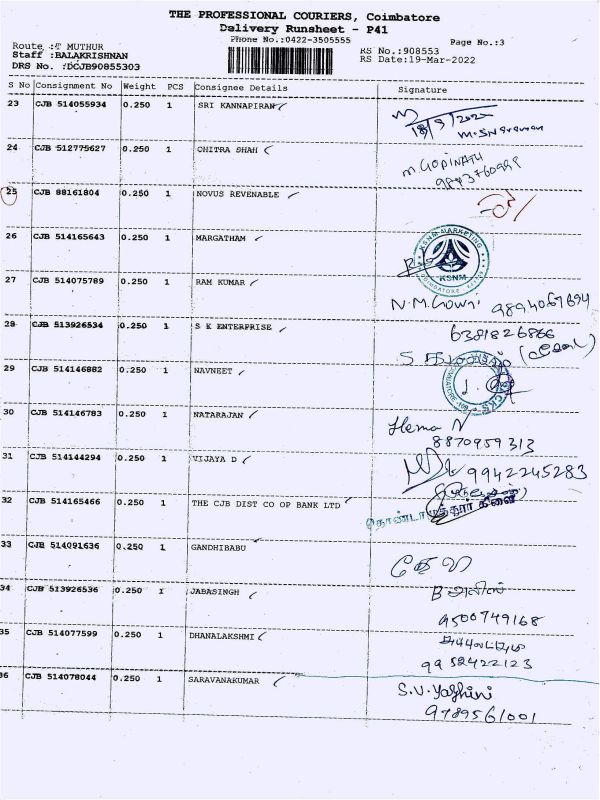 THE PROFESSIONAL COURIERS, Coimbatore
Delivery Runsheet - P41
Phone No.:0422-3505555
Page No.:3
Route :T MUTHUR
RS No.:908553
Staff :BALAKRISHNAN
RS Date:19-Mar-2022
DRS No. :DCJB90855303
S No Consignment No Weight PCS Consignee Details Signature
23 CJB 514055934 0.250 1 SRI KANNAPIRAN
18/3/2022
24 CJB 512775627 0.250 1 CHITRA SHAH
M GOPINATH
25 CJB 88161804 0.250 1 NOVUS REVENABLE
26 CJB 514165643 0.250 1 MARGATHAM
KSNM MARKETING
KSNM
COIMBATORE
27 CJB 514075789 0.250 1 RAM KUMAR
N.M.Gowri 9894067694
28 CJB 513926534 0.250 1 S K ENTERPRISE
6381826866
29 CJB 514146882 0.250 1 NAVNEET
30 CJB 514146783 0.250 1 NATARAJAN
Hema N
8870959313
31 CJB 514144294 0.250 1 VIJAYA D
9942245283
32 CJB 514165466 0.250 1 THE CJB DIST CO OP BANK LTD
தொண்டாமுத்தூர் கிளை
33 CJB 514091636 0.250 1 GANDHIBABU
34 CJB 513926536 0.250 1 JABASINGH
9500749168
35 CJB 514077599 0.250 1 DHANALAKSHMI
9952422123
36 CJB 514078044 0.250 1 SARAVANAKUMAR
S.V.Yazhini
9789561001